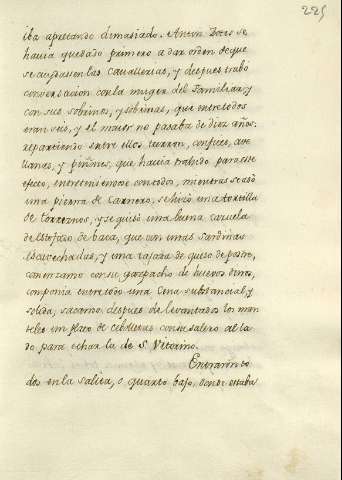 225
iba apretando dimasiado. Anton Zotes se
havia quedado primero a dar orden de que
se acupasen las cavallerias, y despues trabó
conversacion con la muger del Familiar, y
con sus sobrinos, y sobrinas, que entre todos
eran seis, y el maior no pasaba de diez años:
repartiendo entre ellos turron, confites, ave
llanas, y piñones, que havia trahido para este
efecto, entretenimose con todos, mientras se asó
una pierna de carnero, se hizo una tortilla
de torreznos, y se guisó una buena cazuela
de estofado de baca, que con unas sardinas
escavechadas, y una tajada de queso de postre,
comenzamo con su gazpacho de huevos duros,
componia entre todo una Cena substancial, y
solida, sacaron despues de levantados los man
teles un plato de cebollas con su salero al la
do para echar la de S. Vitorino.
Entraron to
dos en la salita, o quarto bajo, donde estaba